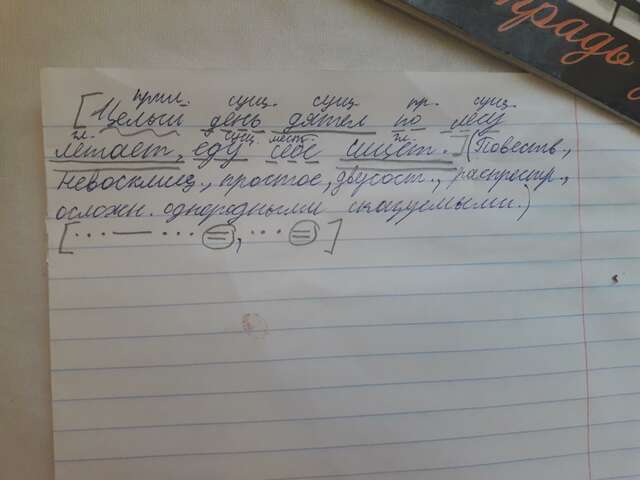 традь
прил. сущ. сущ. пр. сущ.
[Целый день дятел по лесу
гл. сущ. мест. гл.
летает, еду себе ищет.] (Повеств.,
невосклиц., простое, двусост., распростр.,
осложн. однородными сказуемыми.)
[... — ... =, ... =]